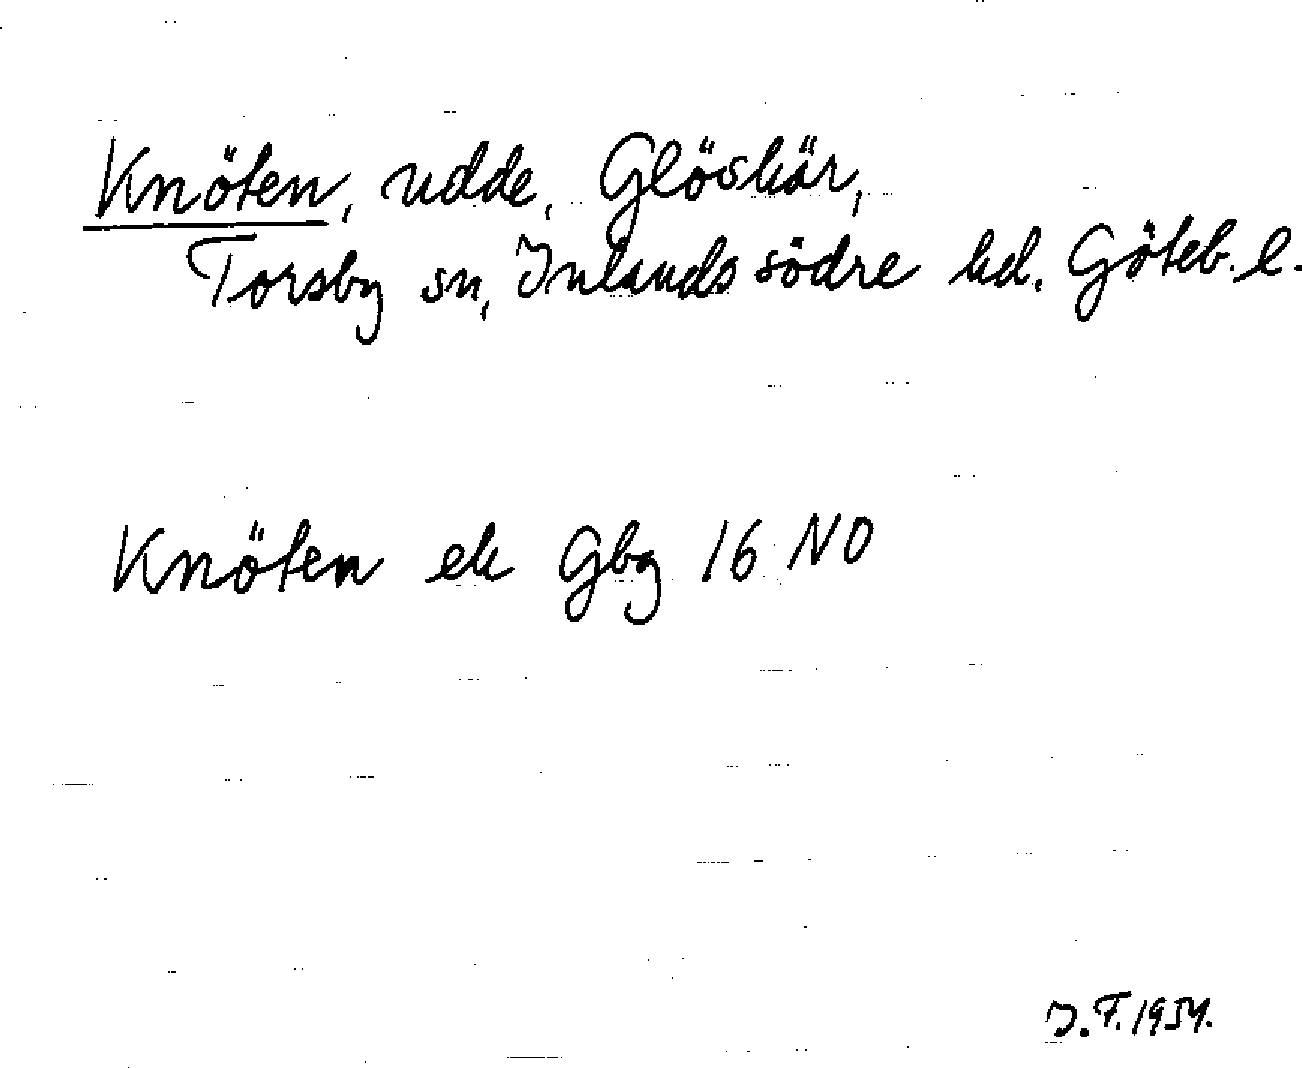 Knöten, udde, Glöskär,
Torsby sn, Inlands södre hd. Göteb. l.
Knöten ek Gbg 16 NO
I. F. 1954.